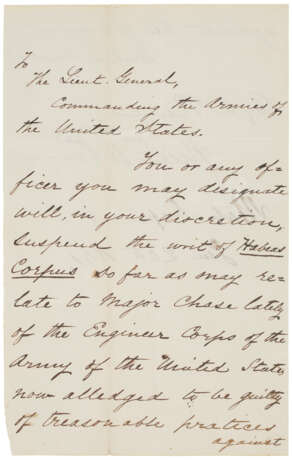 To
The Lieut. General,
Commanding the Armies of
the United States.
You or any of-
ficer you may designate
will, in your discretion,
suspend the writ of Habeas
Corpus so far as may re-
late to Major Chase lately
of the Engineer Corps of the
Army of the United States
now alledged to be guilty
of treasonable practices
against